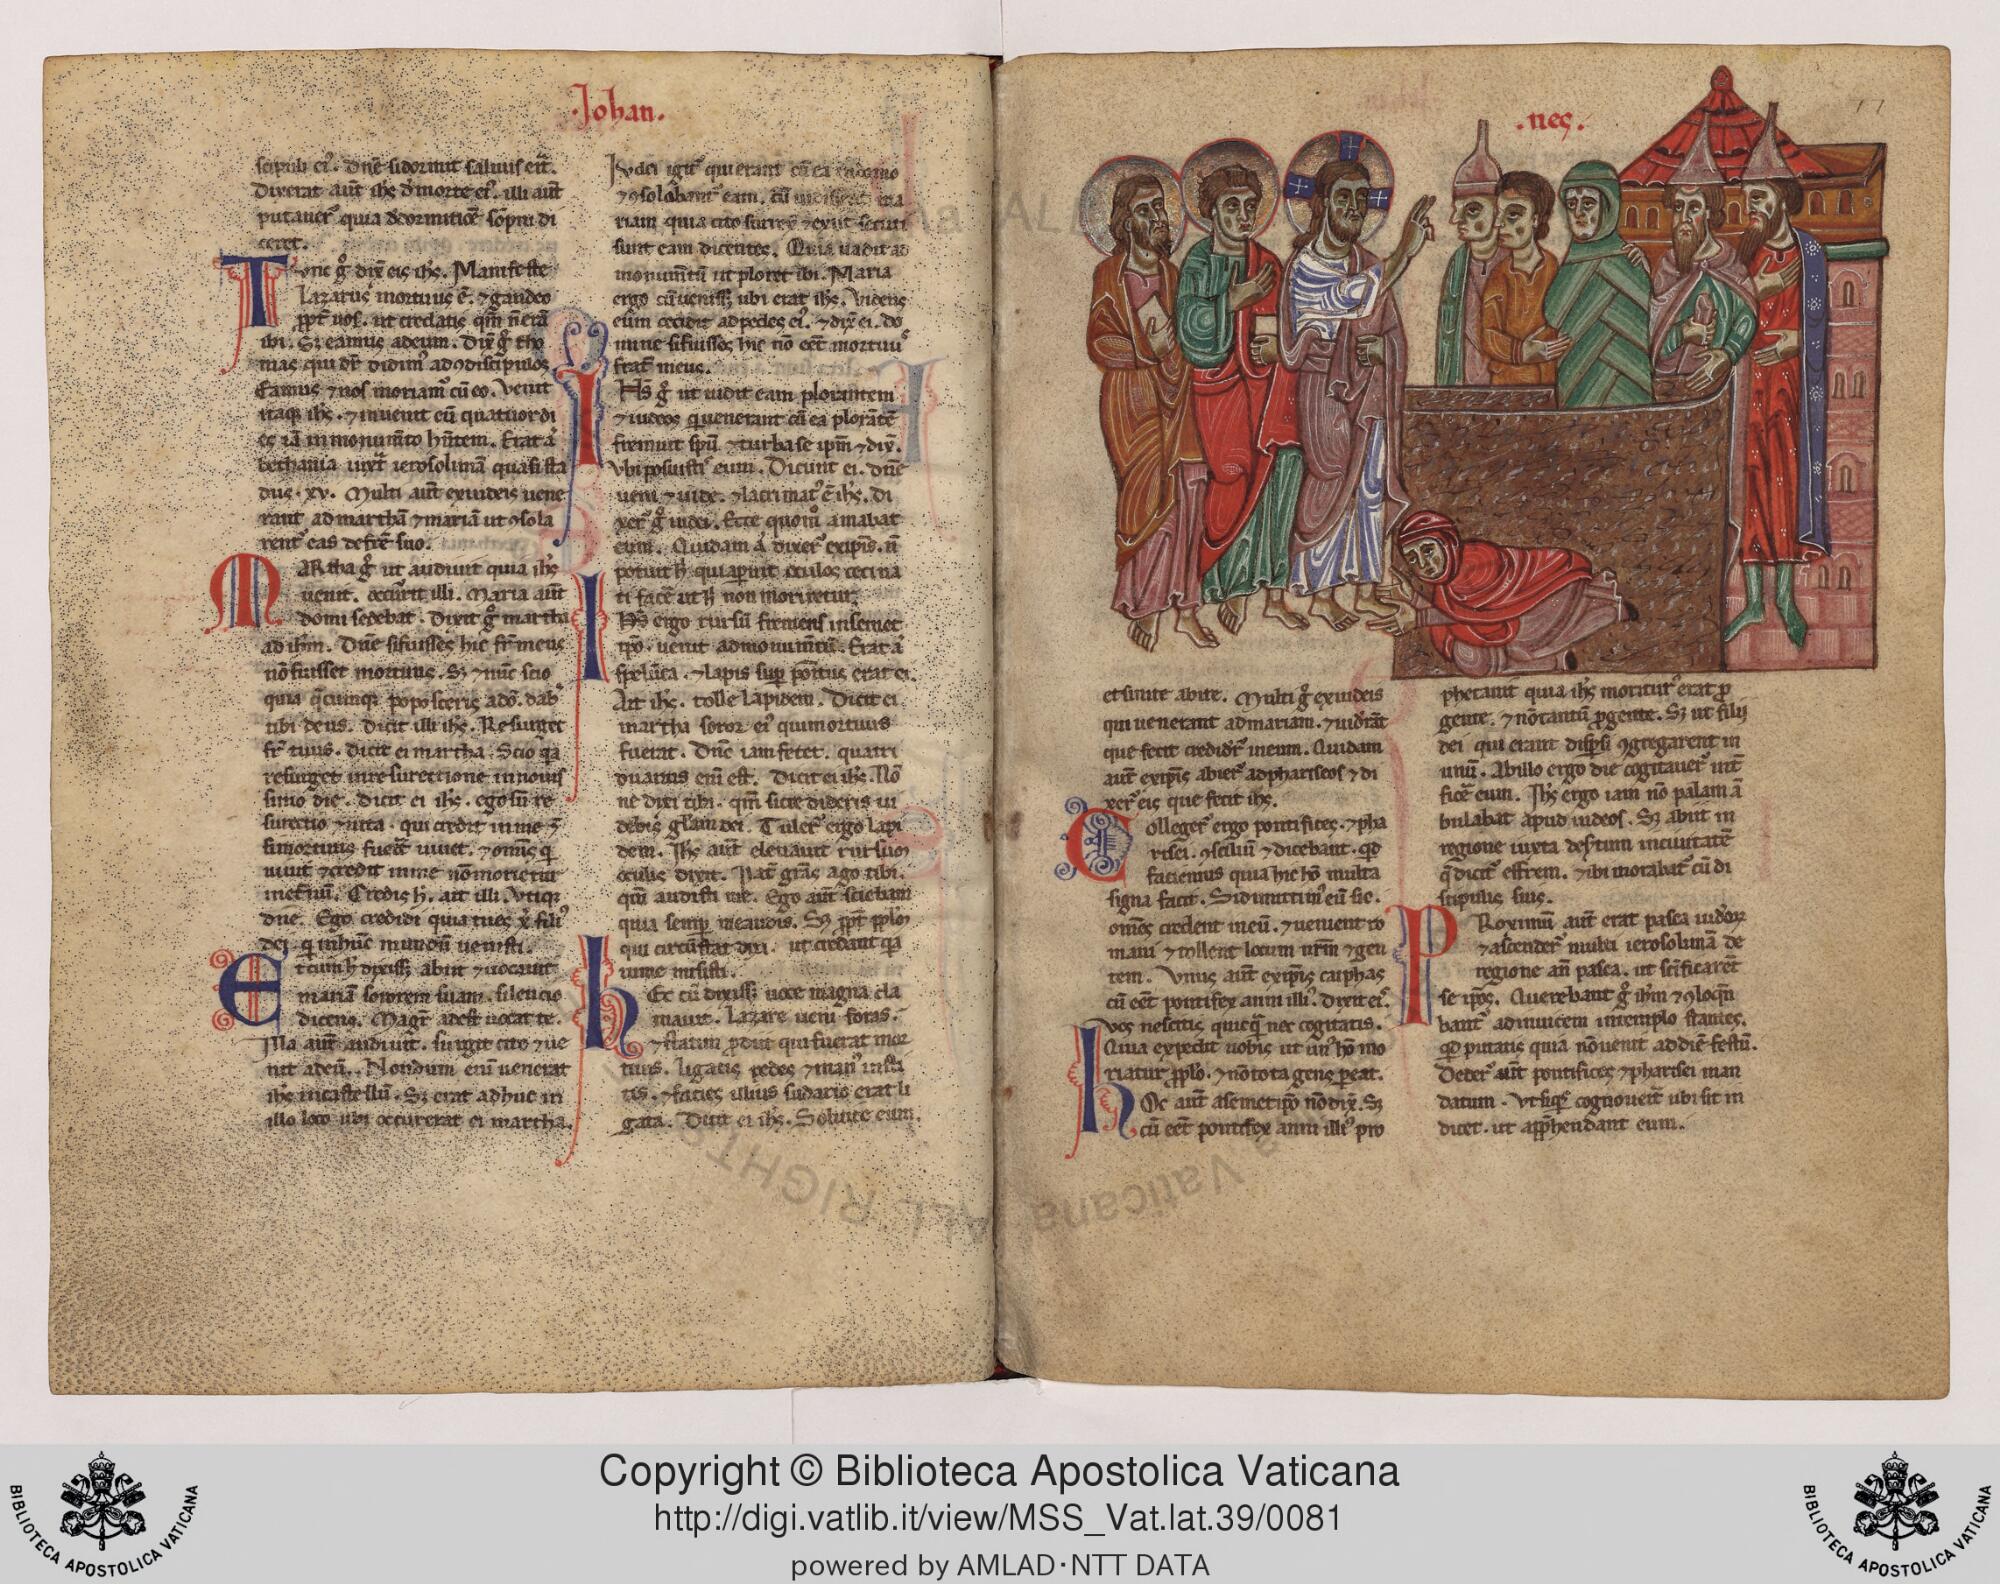 ·Johan.
scipuli eiꝰ. Dn̄e si dormit saluus erit.
Dixerat aut̄ ih̄s d̓ morte eiꝰ. illi aut̄
putauer̄ quia d̓ dormitiōe sōpni di
ceret.
Tunc g̊ dix̄ eis ih̄s. Manifeste
Lazarus mortuus ē. ⁊ gaudeo
ꝓpt̄ uos. ut credatis qm̄ n̄ erā
ibi. Sꝫ eamus ad eum. Dix̄ g̊ tho
mas qui dr̄ didimꝰ ad ꝯdiscipulos
Eamus ⁊ nos moriamꝰ cū eo. Venit
itaqꝫ ih̄s. ⁊ inuenit eū quatuor di
es iā in monumēto hn̄tem. Erat aꝰ
bethania iuxt̄ ierosolimā quasi sta
diis. xv. Multi aut̄ ex iudeis uene
rant ad marthā ⁊ mariā ut ꝯsola
rentꝰ eas de fr̄e suo.
MARtha g̊ ut audiuit quia ih̄s
uenit. occurrit illi. Maria aut̄
domi sedebat. Dixit g̊ martha
ad ih̄m. Dn̄e si fuisses hic fr̄ meus
nō fuisset mortuus. Sꝫ ⁊ nūc scio
quia q̄cumqꝫ poposceris a dō. dabꝰ
tibi deus. Dicit illi ih̄s. Resurget
fr̄ tuus. Dicit ei martha. Scio q̓a
resurget in resurectione in nouis
simo die. Dicit ei ih̄s. ego sū re
surectio ⁊ uita. qui credit in me ⁊
si mortuus fuerit uiuet. ⁊ omīs q̓
uiuit ⁊ credit in me nō morietur
in et̄nū. Credis h̓. ait illi. Vtiqꝫ
dn̄e. Ego credidi quia tu es x̄p̄ filiꝰ
dei. q̓ in hūc mundū uenisti.
Et cum h̓ dixissꝫ abiit ⁊ uocauit
mariā sororem suam. silencio
dicens. Magr̄ adest uocat te.
Illa aut̄ audiuit. surgit cito ⁊ ue
nit ad eū. Nondum eni uenerat
ih̄s in castellū. Sꝫ erat adhuc in
illo loco ubi occurerat ei martha.
Iudei igit̄ qui erant cū ea in domo
⁊ ꝯsolabantꝰ eam. cū uidissent ma
riam quia cito surrex̄ ⁊ exiit secuti
sunt eam dicentes. Quia uadit ad
monumt̄ū ut ploret ibi. Maria
ergo cū uenissꝫ ubi erat ih̄s. Videns
eūm cecidit ad pedes eiꝰ. ⁊ dix̄ ei. do
mine si fuisses hic nō eēt mortuuˢ
frat̄ meus.
IH̄S g̊ ut uidit eam plorantem
⁊ iudeos q̓ uenerant cū ea plorātē
fremuit sp̄u ⁊ turba se ip̄m ⁊ dix̄.
Vbi posuistis eum. Dicunt ei. dn̄e
ueni ⁊ uide. ⁊ lacrimatꝰ ē ih̄s. di
xer̄ g̊ iudei. Ecce quomº amabat
eum. Quidam aꝰ dixer̄ ex ip̄is. n̄
potuit h̓ qui aperuit oculos ceci na
ti facē ut h̓ non moriretur.
IH̄S ergo rursū fremens in semet
ip̄o. uenit ad monumt̄ū. Erat aꝰ
spelūca. ⁊ lapis suꝑ poītus erat ei.
Ait ih̄s. tolle lapidem. Dicit ei
martha soror eiꝰ qui mortuus
fuerat. Dn̄e iam fetet. quatri
duanus eni est. Dicit ei ih̄s. Nō
ne dixi tibi. qm̄ si credideris ui
debis gl̄am dei. Tuler̄ ergo lapi
dem. Ih̄s aut̄ eleuauit rursuꝫ
oculis dixit. Pat̄ grās ago tibi.
qm̄ audisti me. Ego aut̄ sciebam
quia semꝑ me audis. Sꝫ ꝓpt̄ ppl̄m
qui circūstat dixi. ut credant q̓a
tu me misisti.
Hec cū dixissꝫ uoce magna cla
mauit. Lazare ueni foras.
⁊ statim ꝓdiit qui fuerat mor
tuus. ligatis pedes ⁊ manꝰ insti
tis. ⁊ facies illius sudario erat li
gata. Dicit ei ih̄s. Soluite eum.
·nes.
et sinite abire. Multi g̊ ex iudeis
qui uenerant ad mariam. ⁊ uid̓rāt
que fecit credid̓r̄ in eum. Quidam
aut̄ ex ip̄is abier̄ ad phariseos ⁊ di
xer̄ eis que fecit ih̄s.
Collegerˀ ergo pontifices. ⁊ pha
risei. ꝯsciliū ⁊ dicebant. qd̓
faciemus quia hic hō multa
signa facit. Si dimittimꝰ eū sic.
omēs credent in eū. ⁊ uenient ro
mani ⁊ tollent locum nr̄m ⁊ gen
tem. Vnus aut̄ ex ip̄is caiphas
cū eēt pontifex anni illiꝰ. Dixit eis.
Vos nescitis quicq̄ nec cogitatis.
Quia expedit uobis ut unꝰ hō mo
riatur ꝓ pplo. ⁊ nō tota gens ꝑeat.
Hoc aut̄ a semetip̄o nō dix̄. Sꝫ
cū eēt pontifex anni illiꝰ pro
phetauit quia ih̄s moriturꝰ erat ꝓ
gente. ⁊ nō tantū ꝓ gente. Sꝫ ut filij
dei qui erant disꝑsi ꝯgregarent in
unū. Ab illo ergo die cogitauer̄ int̄
ficē eum. Ih̄s ergo iam nō palam ā
bulabat apud iudeos. Sꝫ abiit in
regione iuxta desertum in ciuitatē
q̄ dicitꝰ effrem. ⁊ ibi morabatꝰ cū di
scipulis suis.
PRoximū aut̄ erat pasca iud̓oꝝ
⁊ ascender̄ multi ierosolimā de
regione an̄ pasca. ut sc̄ificarēt
se ip̄os. Querebant g̊ ih̄m ⁊ ꝯloq̄n
bantꝰ ad inuicem in templo stantes.
qd̓ putatis quia nō uenit ad diē festū.
Deder̄ aut̄ pontifices ⁊ pharisei man
datum. Vt siqꝰs cognouerit ubi sit in
dicet. ut app̄hendant eum.
Copyright © Biblioteca Apostolica Vaticana
http://digi.vatlib.it/view/MSS_Vat.lat.39/0081
powered by AMLAD·NTT DATA
BIBLIOTECA APOSTOLICA VATICANA
BIBLIOTECA APOSTOLICA VATICANA